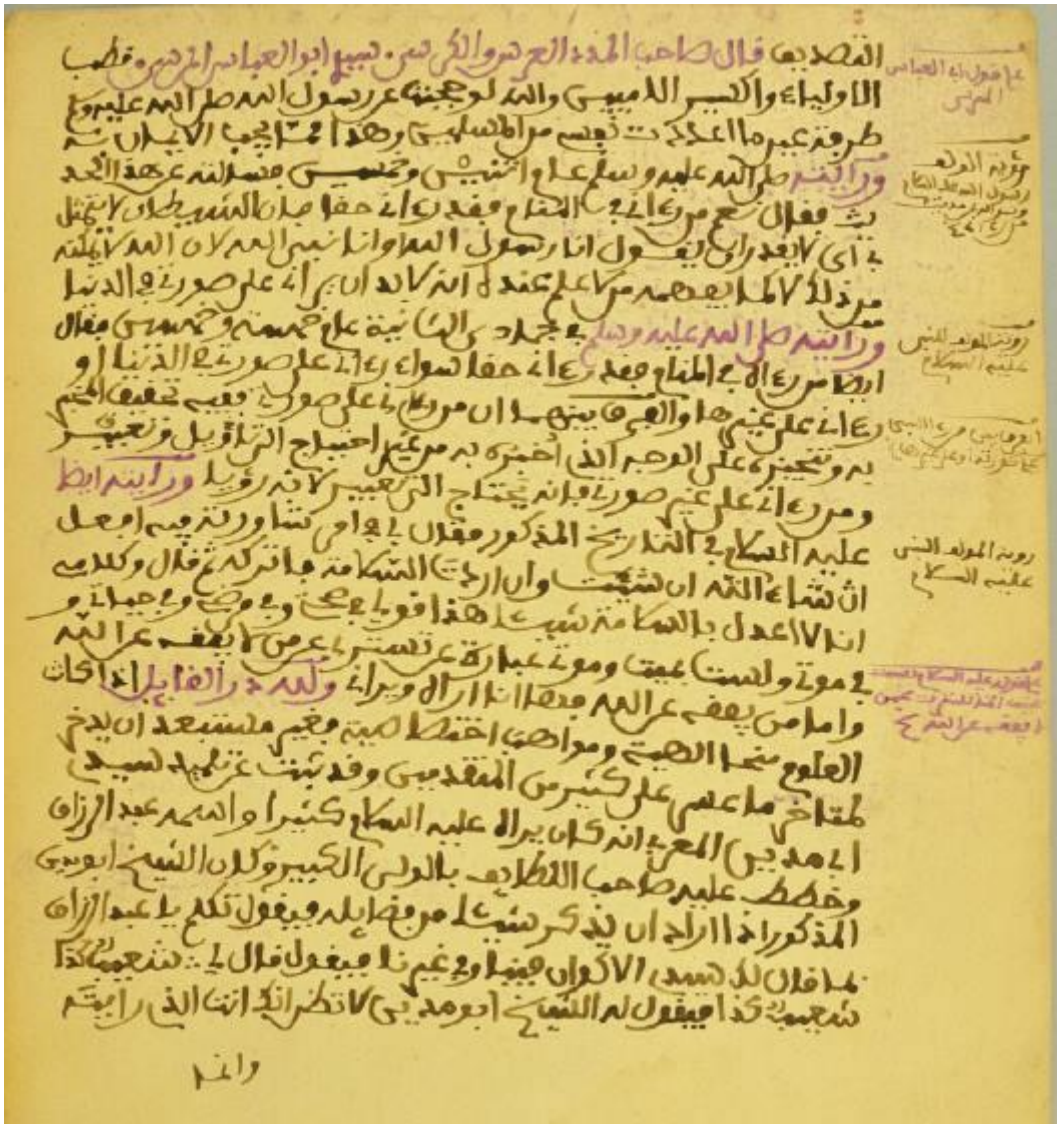 التصديق قال صاحب المدد العرشي والكرسي سيدي ابو العباس المرسي قطب
الاولياء والله لو حجبت عن رسول الله صلى الله عليه وسلم
طرفة عين ما اعددت نفسي من المسلمين وهذا
ورايته صلى الله عليه وسلم عام اثنين وخمسين فسالته عن هذا الحد
يث فقال نعم من رءاني في المنام فقد رءاني حقا فان الشيطان لا يتمثل
بي اي لا يقدر ان يقول انا رسول الله وانا نبي الله لان الله لا يمكنه
من ذلك لا كما يفهمه من لا علم عنده انه لا بد ان يراني على صورتي في الدنيا
ورايته صلى الله عليه وسلم في جمادى الثانية عام خمسة وخمسين فقال
ايضا من رءاني في المنام فقد رءاني حقا سواء رءاني على صورتي في الدنيا او
رءاني على غيرها والفرق بينهما ان من رءاني على صورتي ففيه تحقيق
به وتنجيزه على الوجه الذي اخبره به من غير احتياج الى تاويل وتعبير
ومن رءاني على غير صورتي فانه يحتاج الى تعبير لانه رؤيا ورايته ايضا
عليه السلام في التاريخ المذكور فقال لي في امر شاورته فيه افعل
ان شاء الله ان شئت وان اردت السلامة فاتركه ثم قال
انا لا اعدل بالسلامة شيئا هذا قولي في صحتي وفي مرضي وفي حياتي و
في موتي ولست بميت وموتي عبارة عن تستري عن من لا يفقه عن الله
واما من يفقه عن الله فها انا اراه ويراني ولله در القايل اذا كانت
العلوم منحا الهية ومواهب اختصاصية فغير مستبعد ان يدخر
لمتاخر ما عسر على كثير من المتقدمين وقد ثبت عن تلميذ سيدي
ابي مدين المغربي انه كان يراه عليه السلام كثيرا واسمه عبد الرزاق
وخطط عليه صاحب اللطايف بالولي الكبير وكان الشيخ ابو مدين
المذكور اذا اراد ان يذكر شيئا من فضايله فيقول تكلم يا عبد الرزاق
بما قال لك سيد الاكوان فينا وفي غيرنا فيقول قال لي شعيب كذا
شعيب كذا فيقول له الشيخ ابو مدين لا تظن انك انت الذي رايته
وانما
على قول ابي العباس
المرسي
رؤية المولف
رسول الله عليه السلام
رؤية المولف للنبي
عليه السلام
الفرق بين من رءا النبي
على صورته او على غيرها
رؤية المولف النبي
عليه السلام